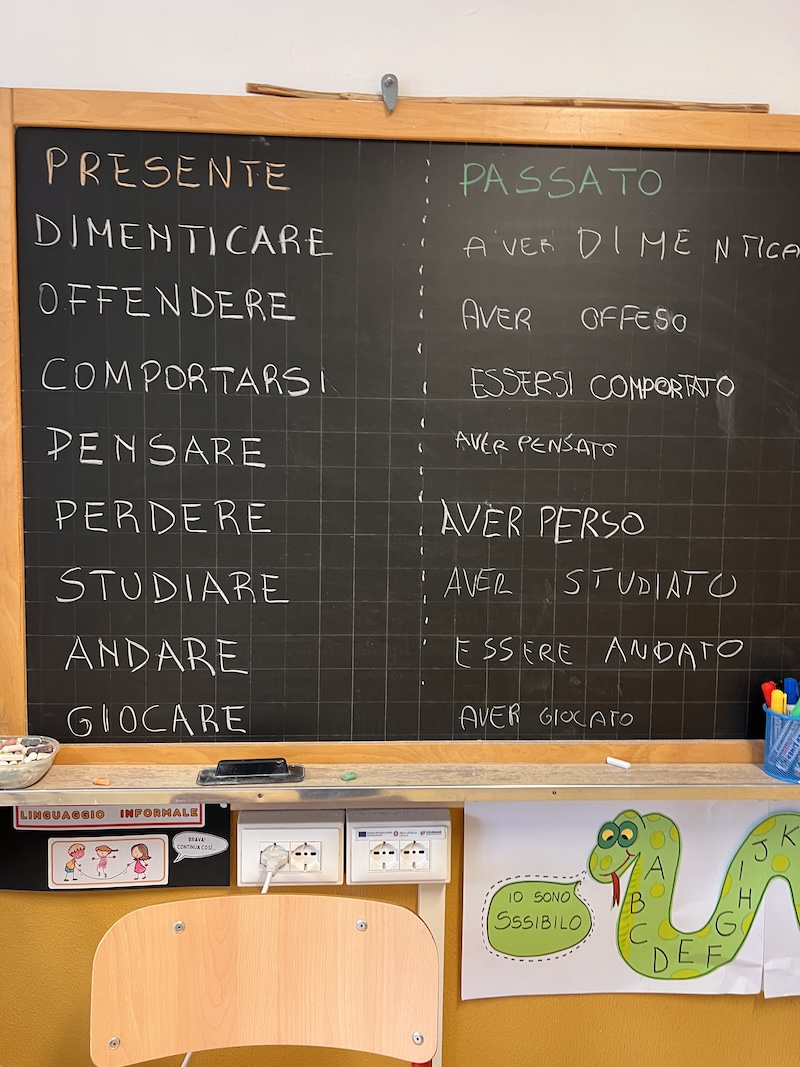 PRESENTE
PASSATO
DIMENTICARE
AVER DIMENTICA
OFFENDERE
AVER OFFESO
COMPORTARSI
ESSERSI COMPORTATO
PENSARE
AVER PENSATO
PERDERE
AVER PERSO
STUDIARE
AVER STUDIATO
ANDARE
ESSERE ANDATO
GIOCARE
AVER GIOCATO
LINGUAGGIO INFORMALE
BRAVA!
CONTINUA COSÌ...
IO SONO
SSSIBILO
A
B
C
D
E
F
G
H
I
J
K